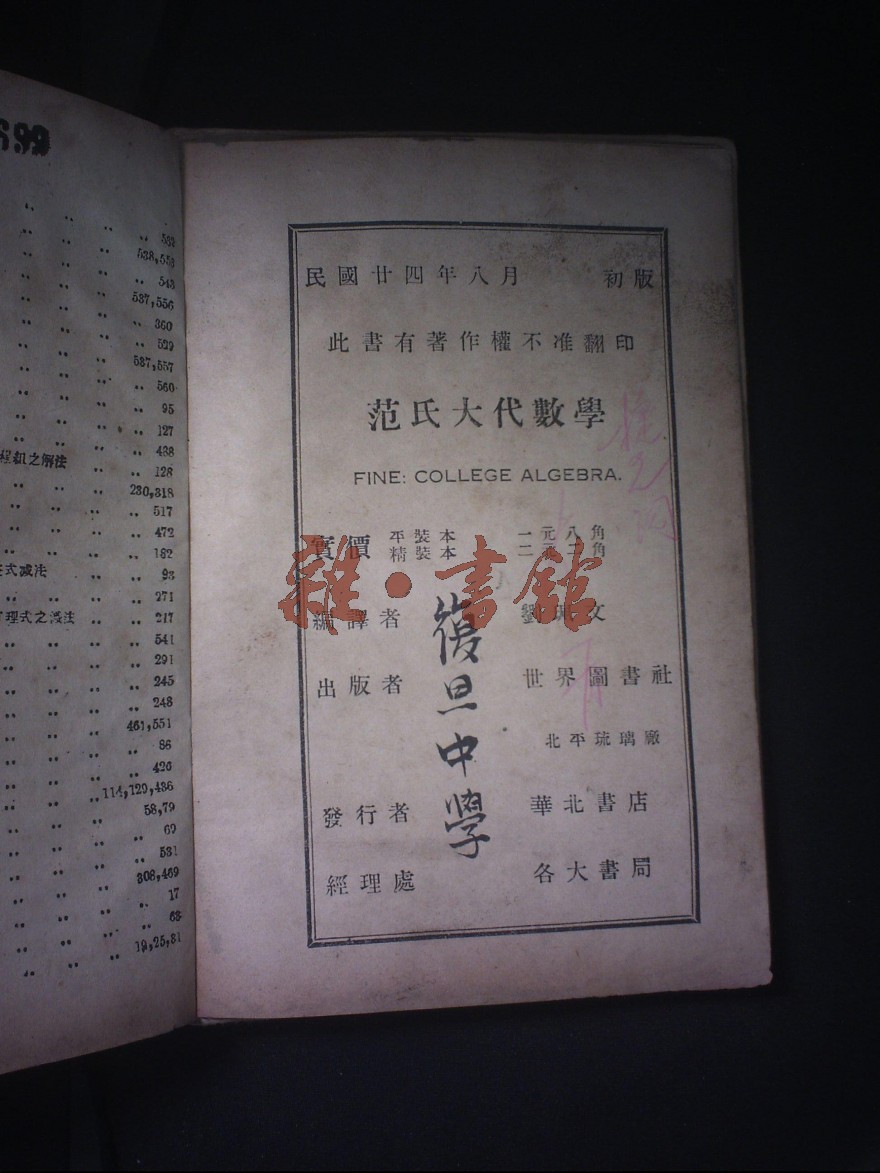 699
.. 562
.. 538,553
.. 543
537,556
.. 360
.. 529
537,557
.. 560
.. 95
.. 127
.. 438
程組之解法 .. 128
230,318
.. 517
.. 472
.. 182
式減法 .. 93
.. 271
理式之淺法 .. 217
.. 541
.. 291
.. 245
.. 248
461,551
.. 86
.. 426
..114,129,436
58,79
.. 60
.. 531
308,469
.. 17
.. 68
19,25,81
民國廿四年八月 初版
此書有著作權不准翻印
范氏大代數學
FINE: COLLEGE ALGEBRA.
實價 平裝本 一元八角
精裝本 二元二角
雜·書館
編譯者 劉 文
出版者 世界圖書社
北平琉璃廠
發行者 華北書店
經理處 各大書局
復旦中學